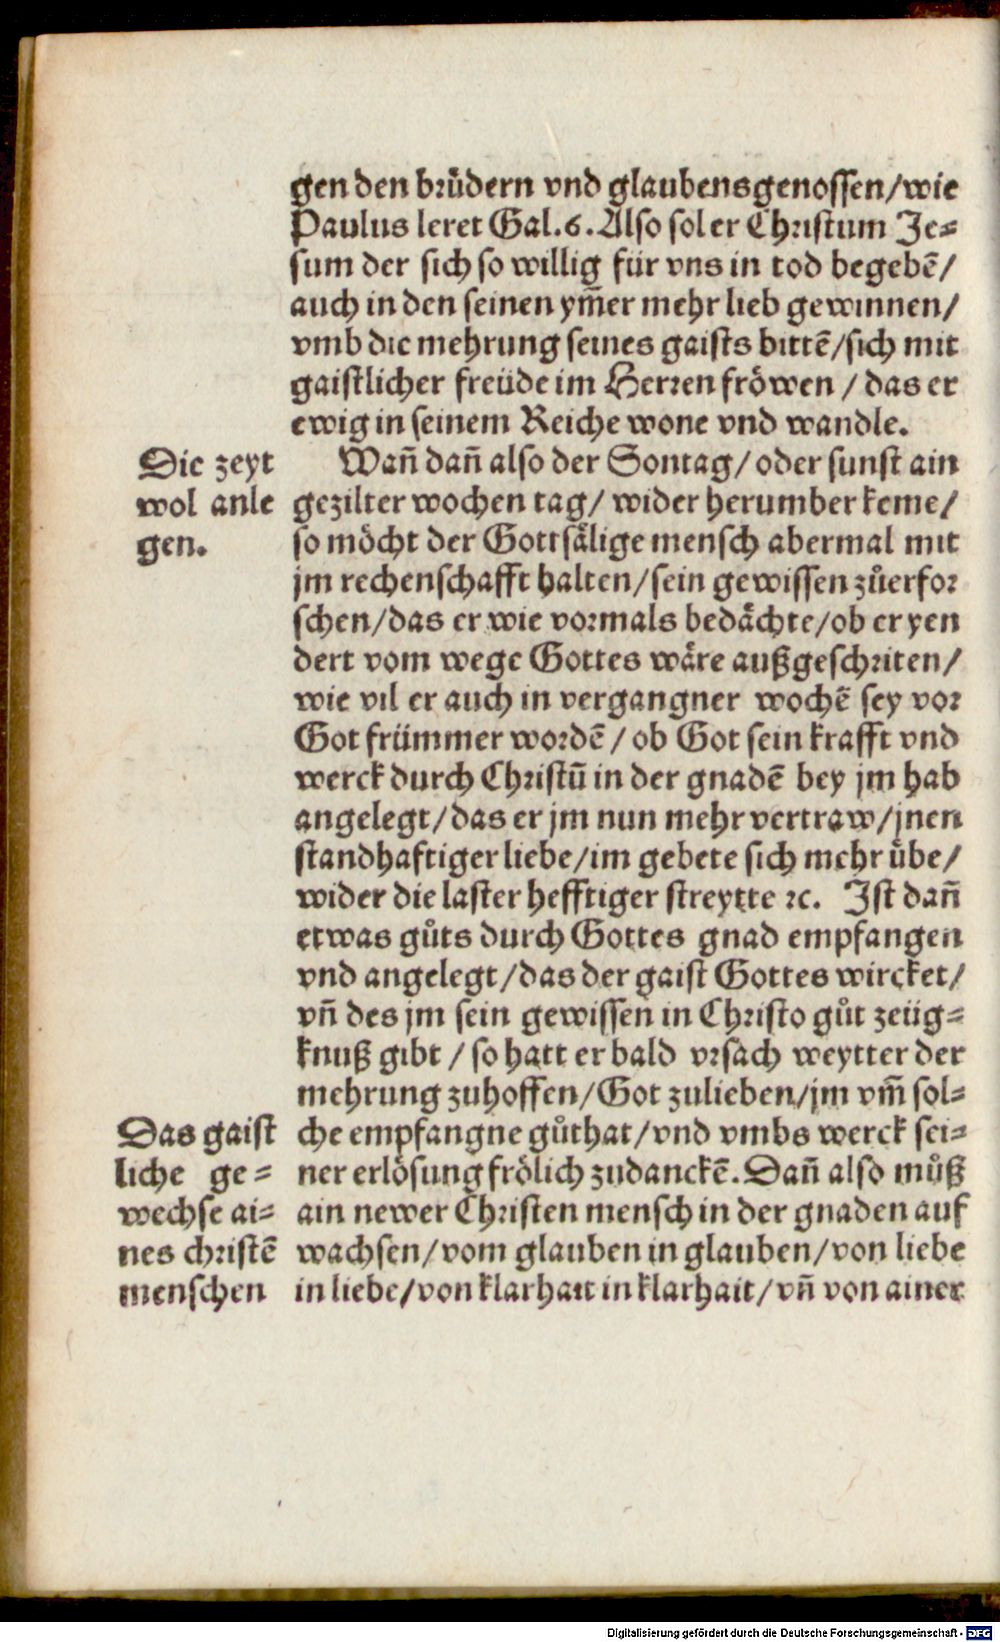 gen den brüdern vnd glaubensgenossen/wie
Paulus leret Gal.6. Also sol er Christum Je⸗
sum der sich so willig für vns in tod begebē/
auch in den seinen ym̄er mehr lieb gewinnen/
vmb die mehrung seines gaists bittē/sich mit
gaistlicher freüde im Herren fröwen / das er
ewig in seinem Reiche wone vnd wandle.
Die zeyt
wol anle
gen.
Wan̄ dan̄ also der Sontag/ oder sunst ain
gezilter wochen tag/ wider herumber keme/
so möcht der Gottsälige mensch abermal mit
jm rechenschafft halten/sein gewissen zůerfor
schen/das er wie vormals bedächte/ob er yen
dert vom wege Gottes wäre außgeschriten/
wie vil er auch in vergangner wochē sey vor
Got frümmer wordē / ob Got sein krafft vnd
werck durch Christū in der gnadē bey jm hab
angelegt/das er jm nun mehr vertraw/jnen
standhaftiger liebe/im gebete sich mehr übe/
wider die laster hefftiger streytte ꝛc. Ist dan̄
etwas gůts durch Gottes gnad empfangen
vnd angelegt/das der gaist Gottes wircket/
vn̄ des jm sein gewissen in Christo gůt zeüg⸗
knuß gibt / so hatt er bald vrsach weytter der
mehrung zuhoffen/Got zulieben/jm vm̄ sol⸗
che empfangne gůthat/vnd vmbs werck sei⸗
ner erlösung frölich zudanckē. Dan̄ also můß
ain newer Christen mensch in der gnaden auf
wachsen/vom glauben in glauben/von liebe
in liebe/von klarhait in klarhait/vn̄ von ainer
Das gaist
liche ge⸗
wechse ai⸗
nes christē
menschen
Digitalisierung gefördert durch die Deutsche Forschungsgemeinschaft - DFG